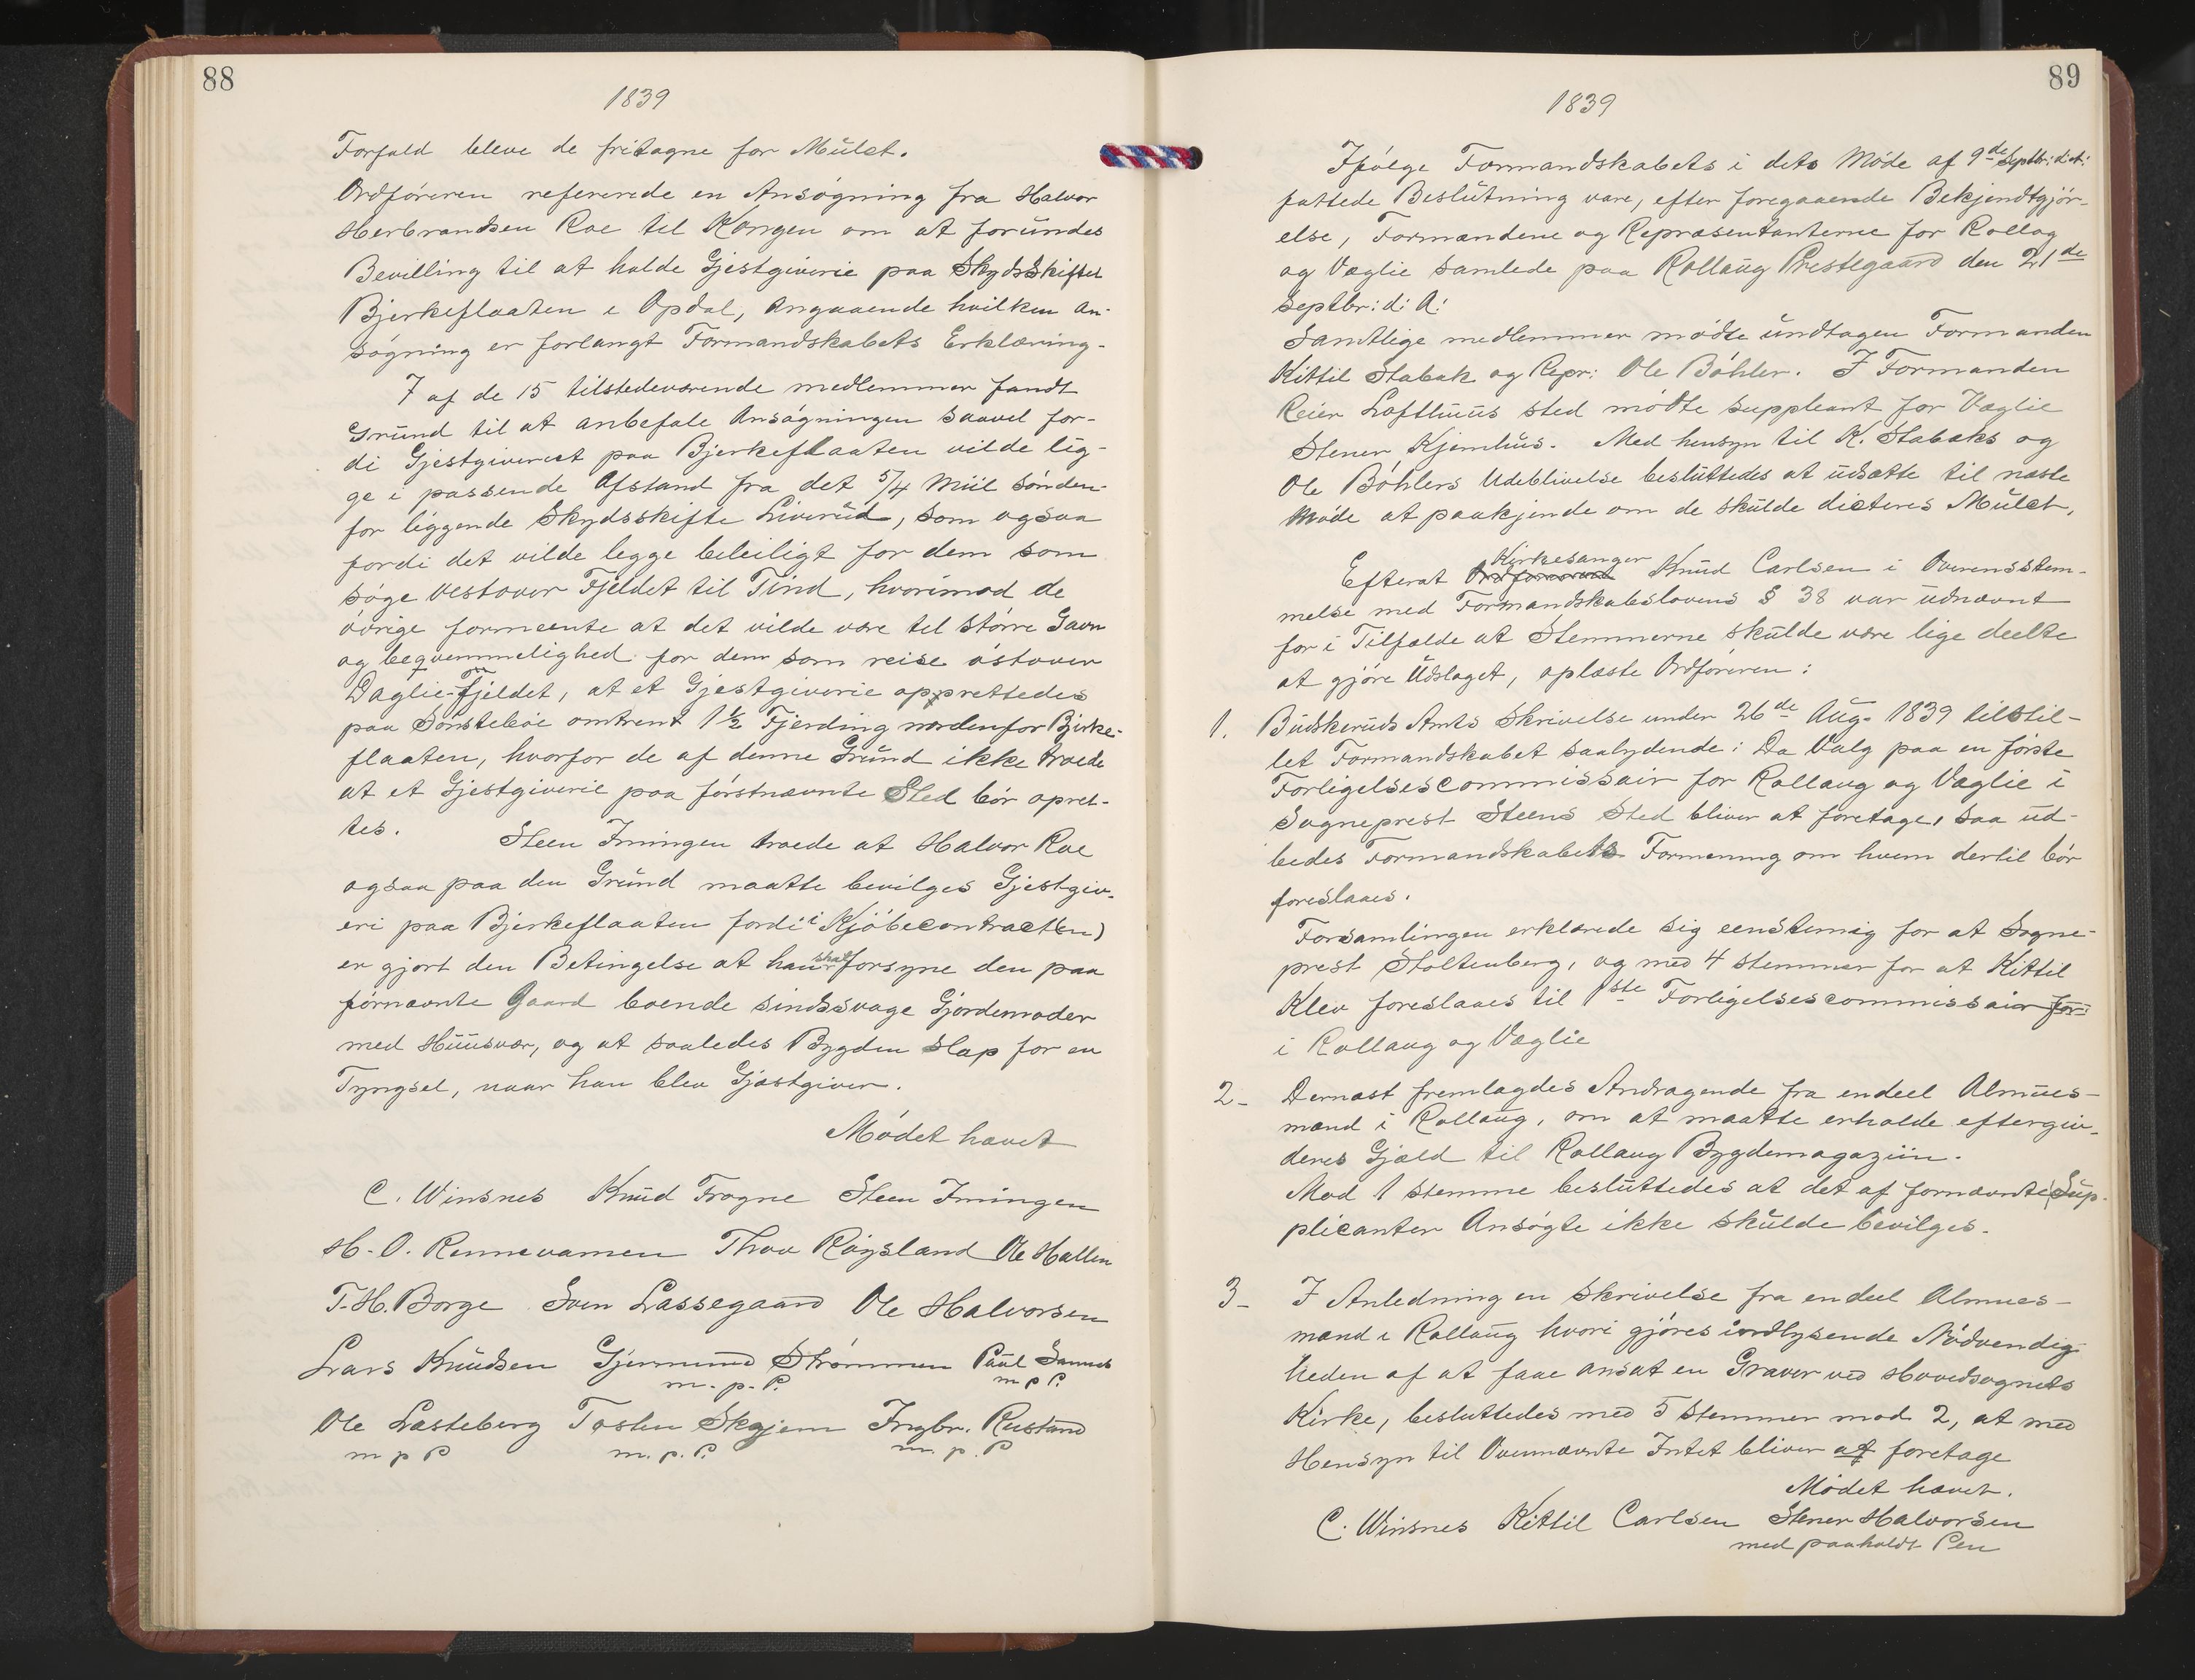 88
1839
Forfald bleve de fritagne for Mulct.
Ordföreren refererede en Ansögning fra Halvor
Herbrandsen Roe til Kongen om at forundes
Bevilling til at holde Gjestgiverie paa Skydsskiftet
Bjerkeflaaten i Opdal, angaaende hvilken An-
sögning er forlangt Formandskabets Erklæring.
7 af de 15 tilstedeværende medlemmer fandt
Grund til at anbefale Ansögningen saavel for-
di Gjestgiveriet paa Bjerkeflaaten vilde lig-
ge i passende Afstand fra det 5/4 Miil sönden-
for liggende Skydsskifte Liverud, som ogsaa
fordi det vilde legge beleiligt for dem som
söge vestover Fjeldet til Tind, hvorimod de
övrige formeente at det vilde være til större Gavn
og beqvemmelighed for dem som reise östover
Daglie-Fjeldet, at et Gjestgiverie opprettedes
paa Sönsteböe omtrent 1½ Fjerding nordenfor Bjerke-
flaaten, hvorfor de af denne Grund ikke troede
at et Gjestgiverie paa förstnævnte Sted bör opret-
tes.
Steen Imingen troede at Halvor Roe
ogsaa paa den Grund maatte bevilges Gjestgiv-
eri paa Bjerkeflaaten fordi i Kjöbecontracten)
er gjort den Betingelse at han skal forsyne den paa
förnævnte Gaard boende sindssvage Gjordemoder
med Huusvær, og at saaledes Bygden slap for en
Tyngsel, naar han blev Gjæstgiver.
Mödet hævet
C. Winsnes Knud Frogne Steen Imingen
H. O. Rennevamen Thov Röysland Ole Hallen
T. H. Borge Sven Lassegaard Ole Halvorsen
Lars Knudsen Gjermund Strömmen Paul Sannes
m. p. P. m p P.
Ole Lasteberg Tosten Skjem Ingbr. Rustand
m p P m. p. P. m. p. P
89
1839
Ifölge Formandskabets i dets Möde af 9de Septbr: d. A:
fattede Beslutning vare, efter foregaaende Bekjendtgjör-
else, Formændene og Repræsentanterne for Rollag
og Væglie samlede paa Rollaug Prestegaard den 21de
Septbr: d: A:
Samtlige medlemmer mödte undtagen Formanden
Kittil Stabak og Repr: Ole Böhler. I Formanden
Reier Lofthuus sted mödte suppleant for Væglie
Stener Kjemhus. Med hensyn til K. Stabaks og
Ole Böhlers Udeblivelse besluttedes at udsætte til næste
Möde at paakjende om de skulde dicteres Mulct,
Efterat Ordföreren Kirkesanger Knud Carlsen i Overensstem-
melse med Formandskabslovens § 38 var udnævnt
for i Tilfælde at Stemmerne skulde være lige deelte
at gjöre Udslaget, oplæste Ordföreren:
1. Budskeruds Amts Skrivelse under 26de Aug. 1839 tilstil-
let Formandskabet saalydende: Da Valg paa en förste
Forligelsescommissair for Rollaug og Væglie i
Sogneprest Steens Sted bliver at foretage, saa ud-
bedes Formandskabets Formening om hvem dertil bör
foreslaaes.
Forsamlingen erklærede sig eenstemig for at Sogne-
prest Stoltenberg, og med 4 stemmer for at Kittil
Klev foreslaaes til 1ste Forligelsescommissair for
i Rollaug og Væglie
2- Dernæst fremlagdes Andragende fra endeel Almues-
mænd i Rollaug, om at maatte erholde eftergiv.
deres Gjæld til Rollaug Bygdemagaziin.
Mod 1 stemme besluttedes at det af fornævnte Sup-
plicanter Ansögte ikke skulde bevilges.
3- I Anledning en Skrivelse fra endeel Almues-
mænd i Rollaug hvori gjöres indlysende Nödvendig-
heden af at faae ansat en Graver ved Hovedsognets
Kirke, besluttedes med 5 Stemmer mod 2, at med
Hensyn til Ovennævnte Intet bliver at foretage
Mödet hævet.
C. Winsnes Kittil Carlsen Stener Halvorsen
med paaholdt Pen